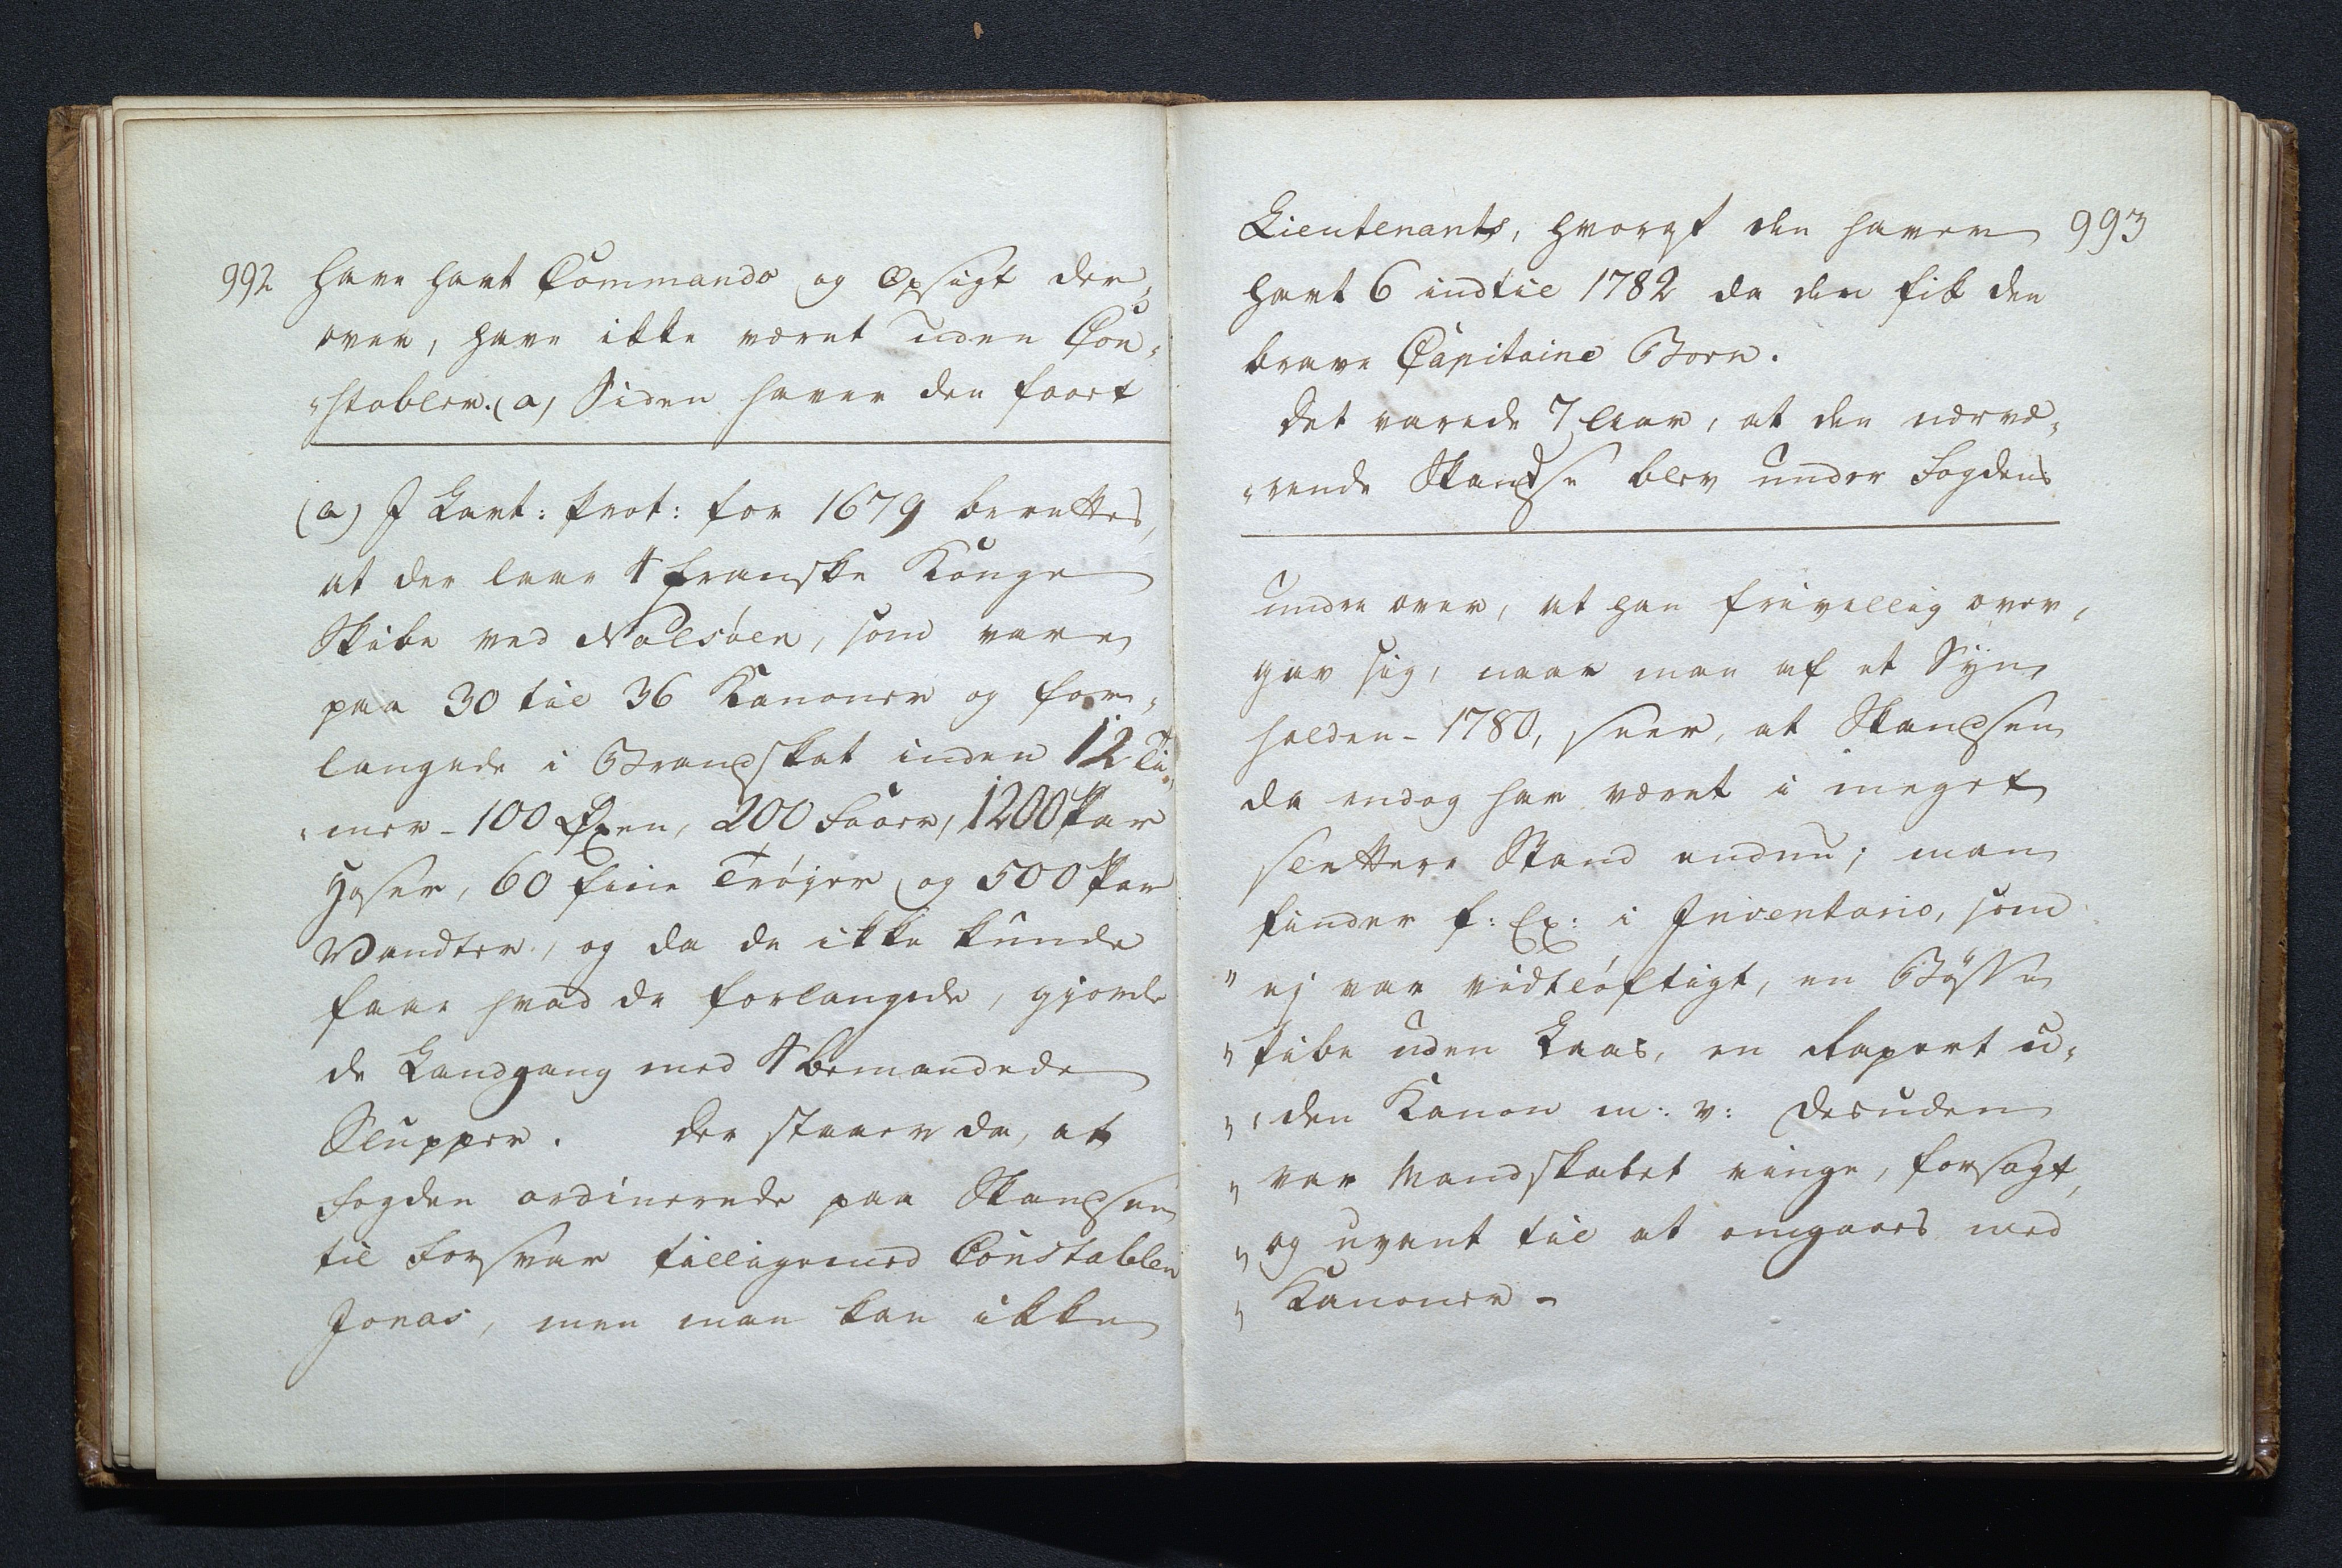 992
have havt Commando og Opsigt der-
over, have ikke været uden Con-
-stabler. (a) Siden haver den faaet
(a) I Lavt: Prot: for 1679 berettes,
at der laae 4 franske Konge
Skibe ved Nolsöen, som vare
paa 30 til 36 Kanoner og for-
langede i Brandskat inden 12 Ti-
-mer - 100 Øxen, 200 Faaer, 1200 Par
Hoser, 60 fine Tröjer og 500 Par
Vandter, og da de ikke kunde
faae hvad de forlangede, gjorde
de Landgang med 4 bemandede
Slupper. Der staaer da, at
Fogden ordinerede paa Skandsen
til Forsvar tilligemed Constablen
Jonas, men man kan ikke
993
Lieutenants, hvoraf den haver
havt 6 indtil 1782 da den fik den
brave Capitaine Born.
Det varede 7 Aar, at den nærvæ-
-rende Skandse blev under Fogdens
undre over, at han frivillig over-
gav sig, naar man af et Syn,
holden - 1780, seer, at Skandsen
da endog har været i meget
slettere Stand endnu; man
finder f: Ex: i Inventario, som
" ej var vidtlöftigt, en Bösse
" Pibe uden Laas, en Rapert u-
" -den Kanon m: v: desuden
" var Mandskabet ringe, forsagt,
" og uvant til at omgaaes med
" Kanoner -